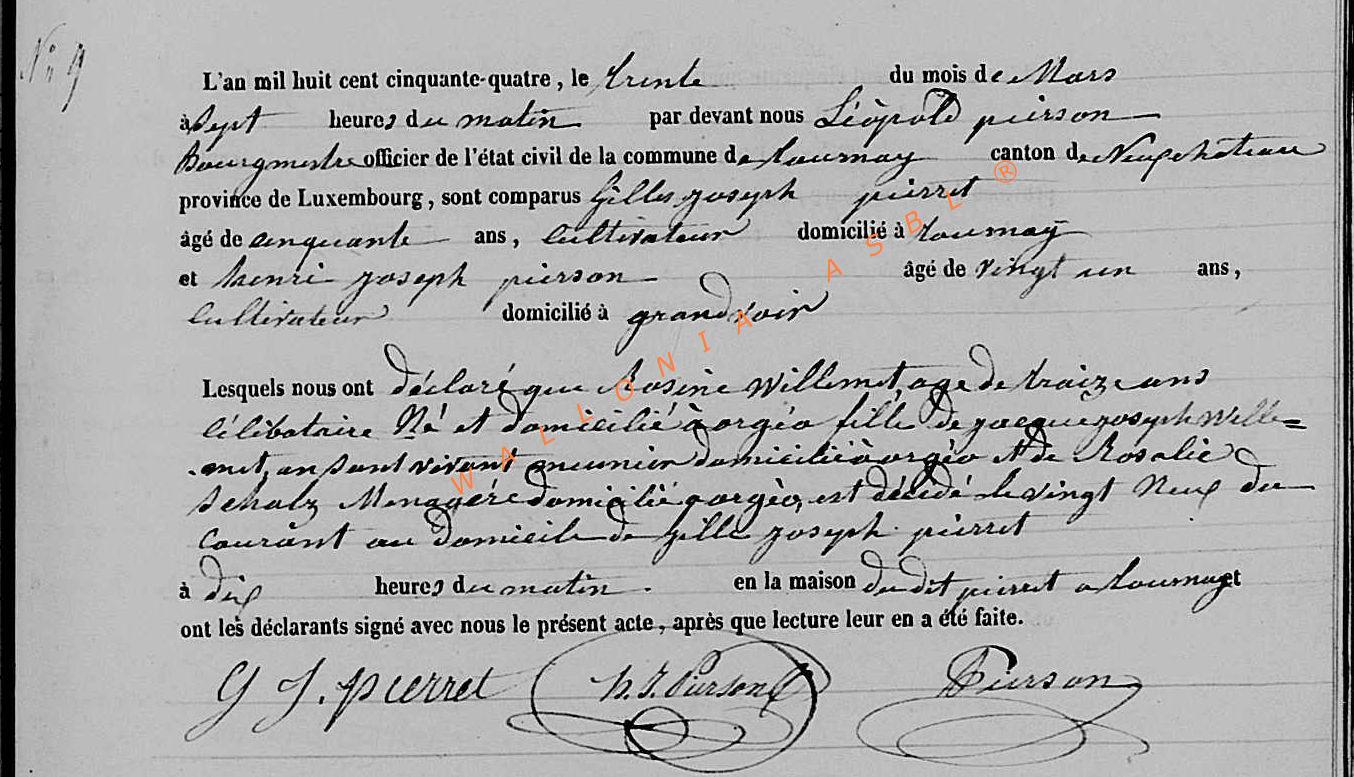 N° 9
L'an mil huit cent cinquante-quatre, le trente du mois de Mars
à Sept heures du matin par devant nous Léopold pierson
Bourgmestre officier de l'état civil de la commune de tournay canton de Neufchateau
province de Luxembourg, sont comparus Gilles joseph pierret
âgé de cinquante ans, Cultivateur domicilié à tournaÿ
et henri joseph pierson âgé de vingt un ans,
Cultivateur domicilié à grandvoir
Lesquels nous ont déclaré que Rosine Willemet, age de traize ans
Célibataire Né et domicilié à orgéo fille de jacque joseph Wille=
met, en sont vivant meunier domicilié à orgéo et de Rosalie
Menagére domicilié a orgéo, est décédé le vingt Neuf du
Courant au domicile de Gille joseph pierret
à dix heures du matin. en la maison du dit pierret a tournay et
ont les déclarants signé avec nous le présent acte, après que lecture leur en a été faite.
G J. pierret h. J. Pierson Pierson
WALLONIA ASBL ®